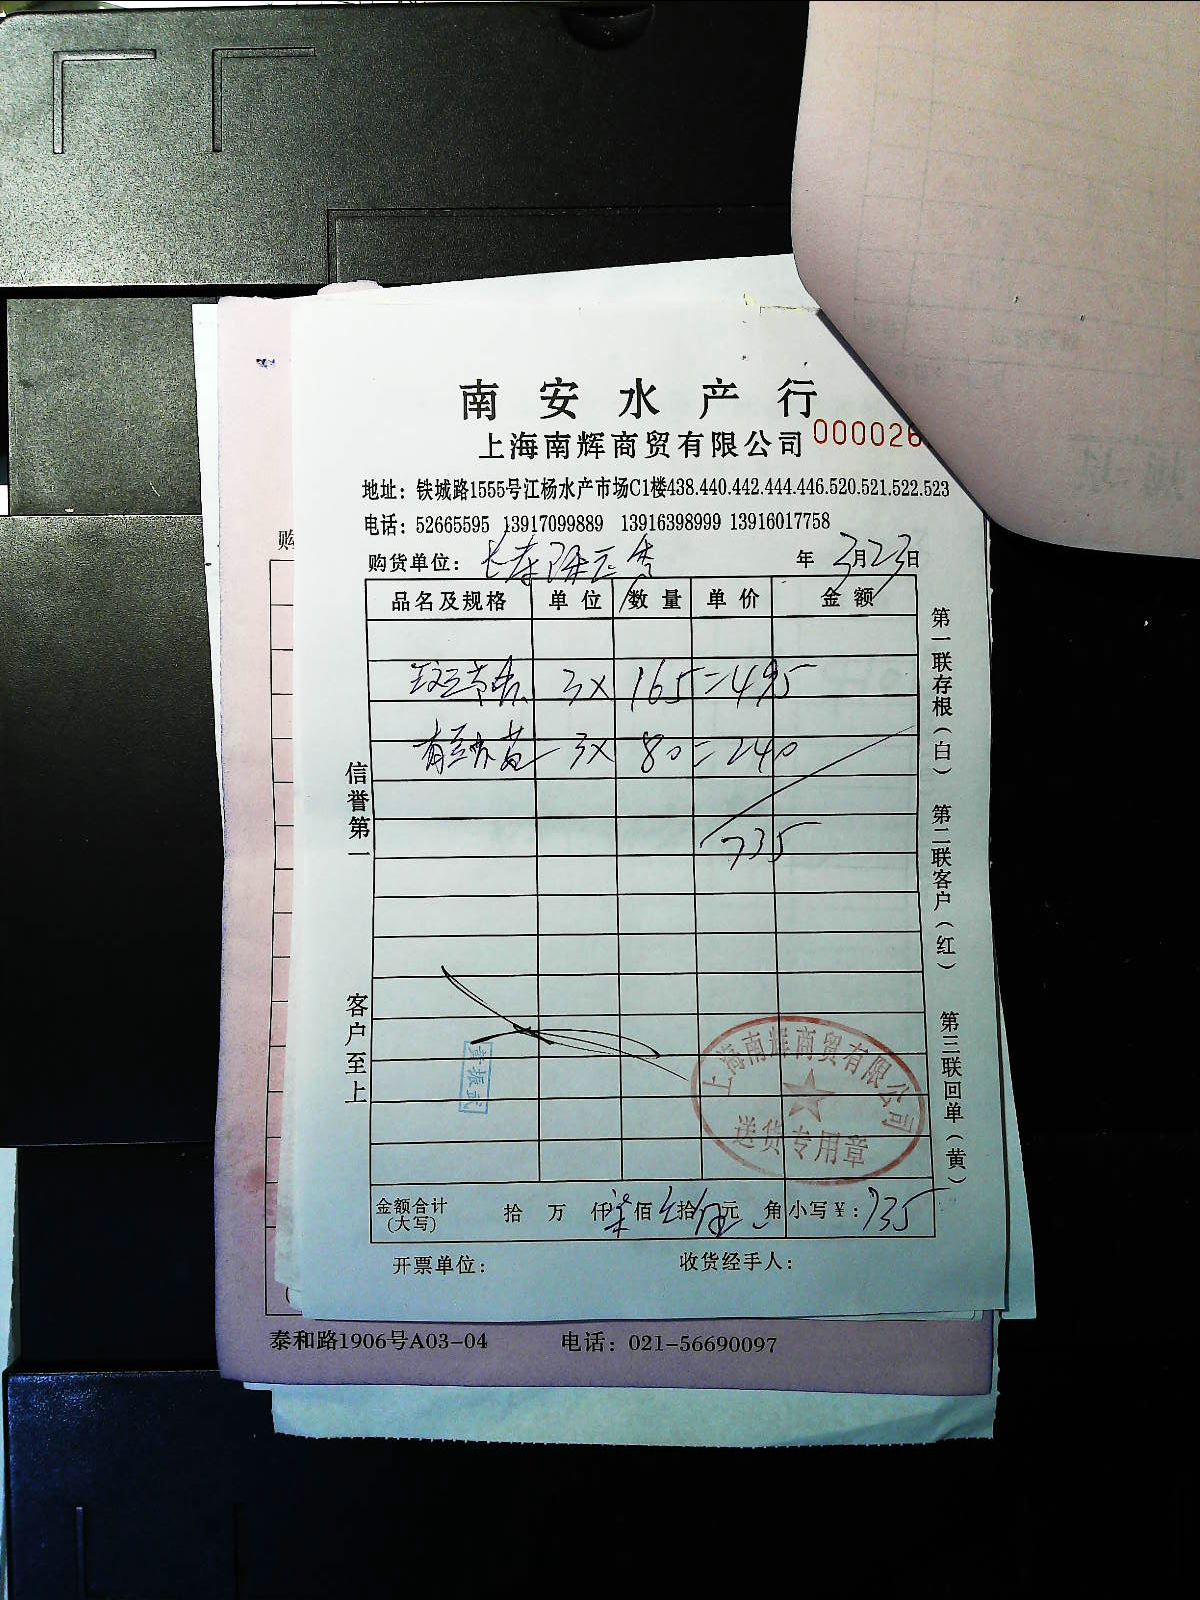 南安水产行
上海南辉商贸有限公司 000026
地址：铁城路1555号江杨水产市场C1楼438.440.442.444.446.520.521.522.523
电话：52665595 13917099889 13916398999 13916017758
购
购货单位： 年 3月23日
品名及规格 单位 数量 单价 金额
3X 165=495
3X 80=240
735
信誉第一
客户至上
第一联存根（白） 第二联客户（红） 第三联回单（黄）
黄振武
上海南辉商贸有限公司
送货专用章
金额合计（大写） 拾 万 仟 柒佰 叁拾 伍元 角 小写￥：735
开票单位： 收货经手人：
泰和路1906号A03-04 电话：021-56690097